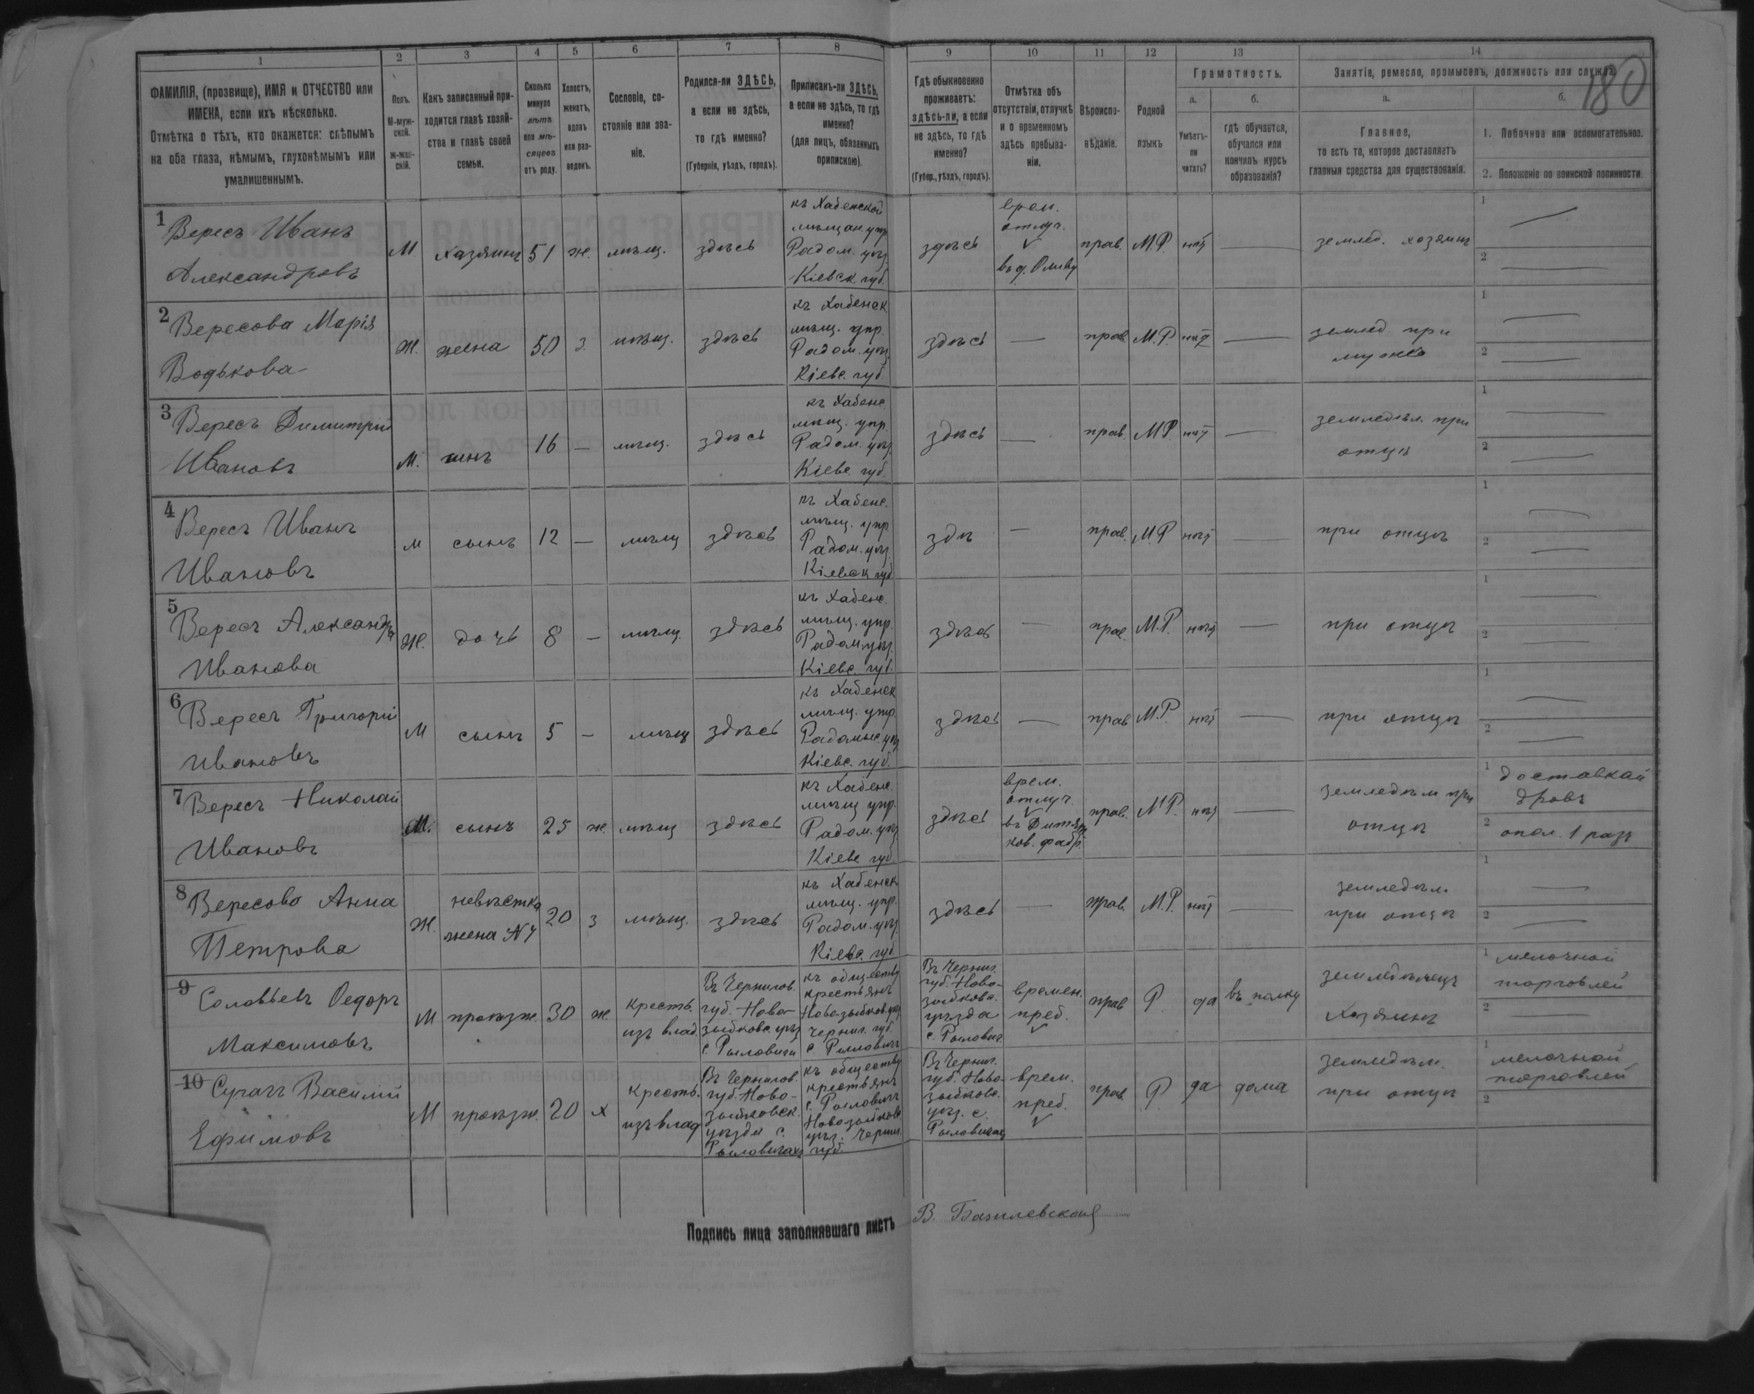 180
1 2 3 4 5 6 7 8 9 10 11 12 13 14
ФАМИЛІЯ, (прозвище), ИМЯ и ОТЧЕСТВО или
ИМЕНА, если ихъ нѣсколько.
Отмѣтка о тѣхъ, кто окажется: слѣпымъ
на оба глаза, нѣмымъ, глухонѣмымъ или
умалишеннымъ.
Полъ.
М-муж-
ской.
Ж-жен-
скій.
Какъ записанный при-
ходится главѣ хозяй-
ства и главѣ своей
семьи.
Сколько
минуло
лѣтъ
или мѣ-
сяцевъ
отъ роду.
Холостъ,
женатъ,
вдовъ
или раз-
веденъ.
Сословіе, со-
стояніе или зва-
ніе.
Родился-ли ЗДѢСЬ,
а если не здѣсь,
то гдѣ именно?
(Губернія, уѣздъ, городъ).
Приписанъ-ли ЗДѢСЬ,
а если не здѣсь, то гдѣ
именно?
(для лицъ, обязанныхъ
припискою).
Гдѣ обыкновенно
проживаетъ:
здѣсь-ли, а если
не здѣсь, то гдѣ
именно?
(Губер., уѣздъ, городъ).
Отмѣтка объ
отсутствіи, отлучкѣ
и о временномъ
здѣсь пребыва-
ніи.
Вѣроиспо-
вѣданіе.
Родной
языкъ
Грамотность.
а.
Умѣетъ-
ли
читать?
б.
гдѣ обучается,
обучался или
кончилъ курсъ
образованія?
Занятіе, ремесло, промыселъ, должность или служба.
а.
Главное,
то есть то, которое доставляетъ
главныя средства для существованія.
б.
1. Побочное или вспомогательное.
2. Положеніе по воинской повинности.
1
Вересъ Иванъ
Александровъ
М хазяинъ 51 ж. мѣщ. здѣсь
къ Хабенской
мѣщан упр
Радом. уѣз.
Кіевск. губ.
здѣсь
врем.
отлуч.
прав. М.Р. нѣт —
землед. хозяинъ
1 —
2 —
2
Вересова Марія
Водькова
Ж. жена 50 з. мѣщ. здѣсь
къ Хабенск
мѣщ. упр.
Радом. уѣз.
Кіевс. губ.
здѣсь — прав. М.Р. нѣт —
землед. при
мужѣ
1 —
2 —
3
Вересъ Димитрій
Ивановъ
М. сынъ 16 — мѣщ. здѣсь
къ Хабенс.
мѣщ. упр.
Радом. уѣз.
Кіевс. губ.
здѣсь — прав. М.Р. нѣт —
земледѣл. при
отцѣ
1 —
2 —
4
Вересъ Иванъ
Ивановъ
м сынъ 12 — мѣщ здѣсь
къ Хабенс.
мѣщ. упр.
Радом. уѣз
Кіевск губ
здѣ — прав. М.Р нѣт
при отцѣ
1 —
2 —
5
Вересъ Александра
Иванова
Ж. дочь 8 — мѣщ. здѣсь
къ Хабенс.
мѣщ. упр.
Радом. уѣз.
Кіевс. губ.
здѣсь — прав. М.Р. нѣт —
при отцѣ
1 —
2 —
6
Вересъ Григорій
Ивановъ
М сынъ 5 — мѣщ здѣсь
къ Хабенск
мѣщ. упр.
Радомыс. уѣз
Кіевс. губ.
здѣсь — прав. М.Р. нѣт —
при отцѣ
1 —
2 —
7
Вересъ Николай
Ивановъ
М. сынъ 25 ж. мѣщ здѣсь
къ Хабенс.
мѣщ упр.
Радом. уѣз
Кіевс губ.
здѣсь
врем.
отлуч.
въ Дитят
ков. фабр.
прав. М.Р. нѣт —
земледѣл при
отцѣ
1 доставкой
дровъ
2 опол. 1 разр
8
Вересова Анна
Петрова
Ж.
невѣстка
жена №7
20 з мѣщ. здѣсь
къ Хабенск
мѣщ. упр.
Радом. уѣз.
Кіевс. губ.
здѣсь — прав. М.Р. нѣт —
земледѣл.
при отцѣ
1 —
2 —
9
Соловьевъ Ѳедоръ
Максимовъ
М проѣзж. 30 ж.
крестьян.
изъ влад
Въ Чернигов.
губ. Ново-
зыбковс. уѣз
с. Рыловичи
къ обществу
крестьянъ
Новозыбков. уѣз
Черниг. губ.
с. Рыловичъ
Въ Черниг.
губ. Ново-
зыбковс.
уѣзда
с. Рылович.
времен.
преб.
прав Р. да въ полку
земледѣлецъ
Хозяинъ
1 мелочной
торговлей
2 —
10
Сугакъ Василій
Ефимовъ
М проѣзж. 20 х
крестьян.
изъ влад
Въ Чернигов.
губ. Ново-
зыбковск.
уѣзда с.
Рыловичахъ
къ обществу
крестьянъ
с. Рыловичъ
Новозыбков.
уѣз. Черниг.
губ.
Въ Черниг.
губ. Ново-
зыбковс.
уѣз. с.
Рыловичах
врем.
преб.
прав Р. да дома
земледѣл.
при отцѣ
1 мелочной
торговлей
2
Подпись лица заполнявшаго листъ В. Базилевскій